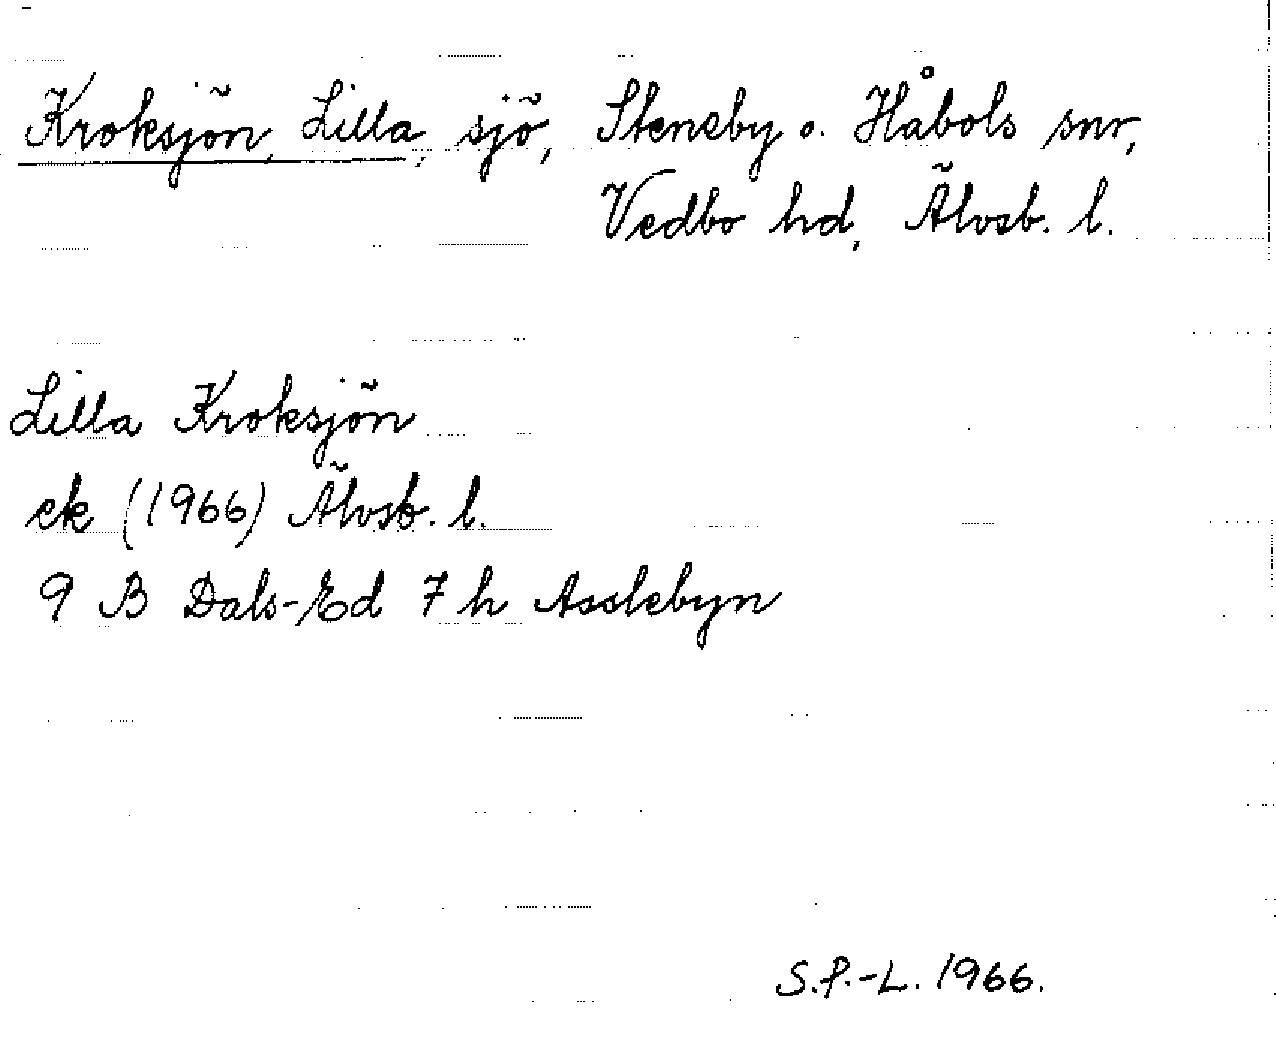 Kroksjön, Lilla, sjö, Steneby o. Håbols snr,
Vedbo hd, Älvsb. l.
Lilla Kroksjön
ek (1966) Älvsb. l.
9 B Dals-Ed 7 h Asslebyn
S.P.-L. 1966.